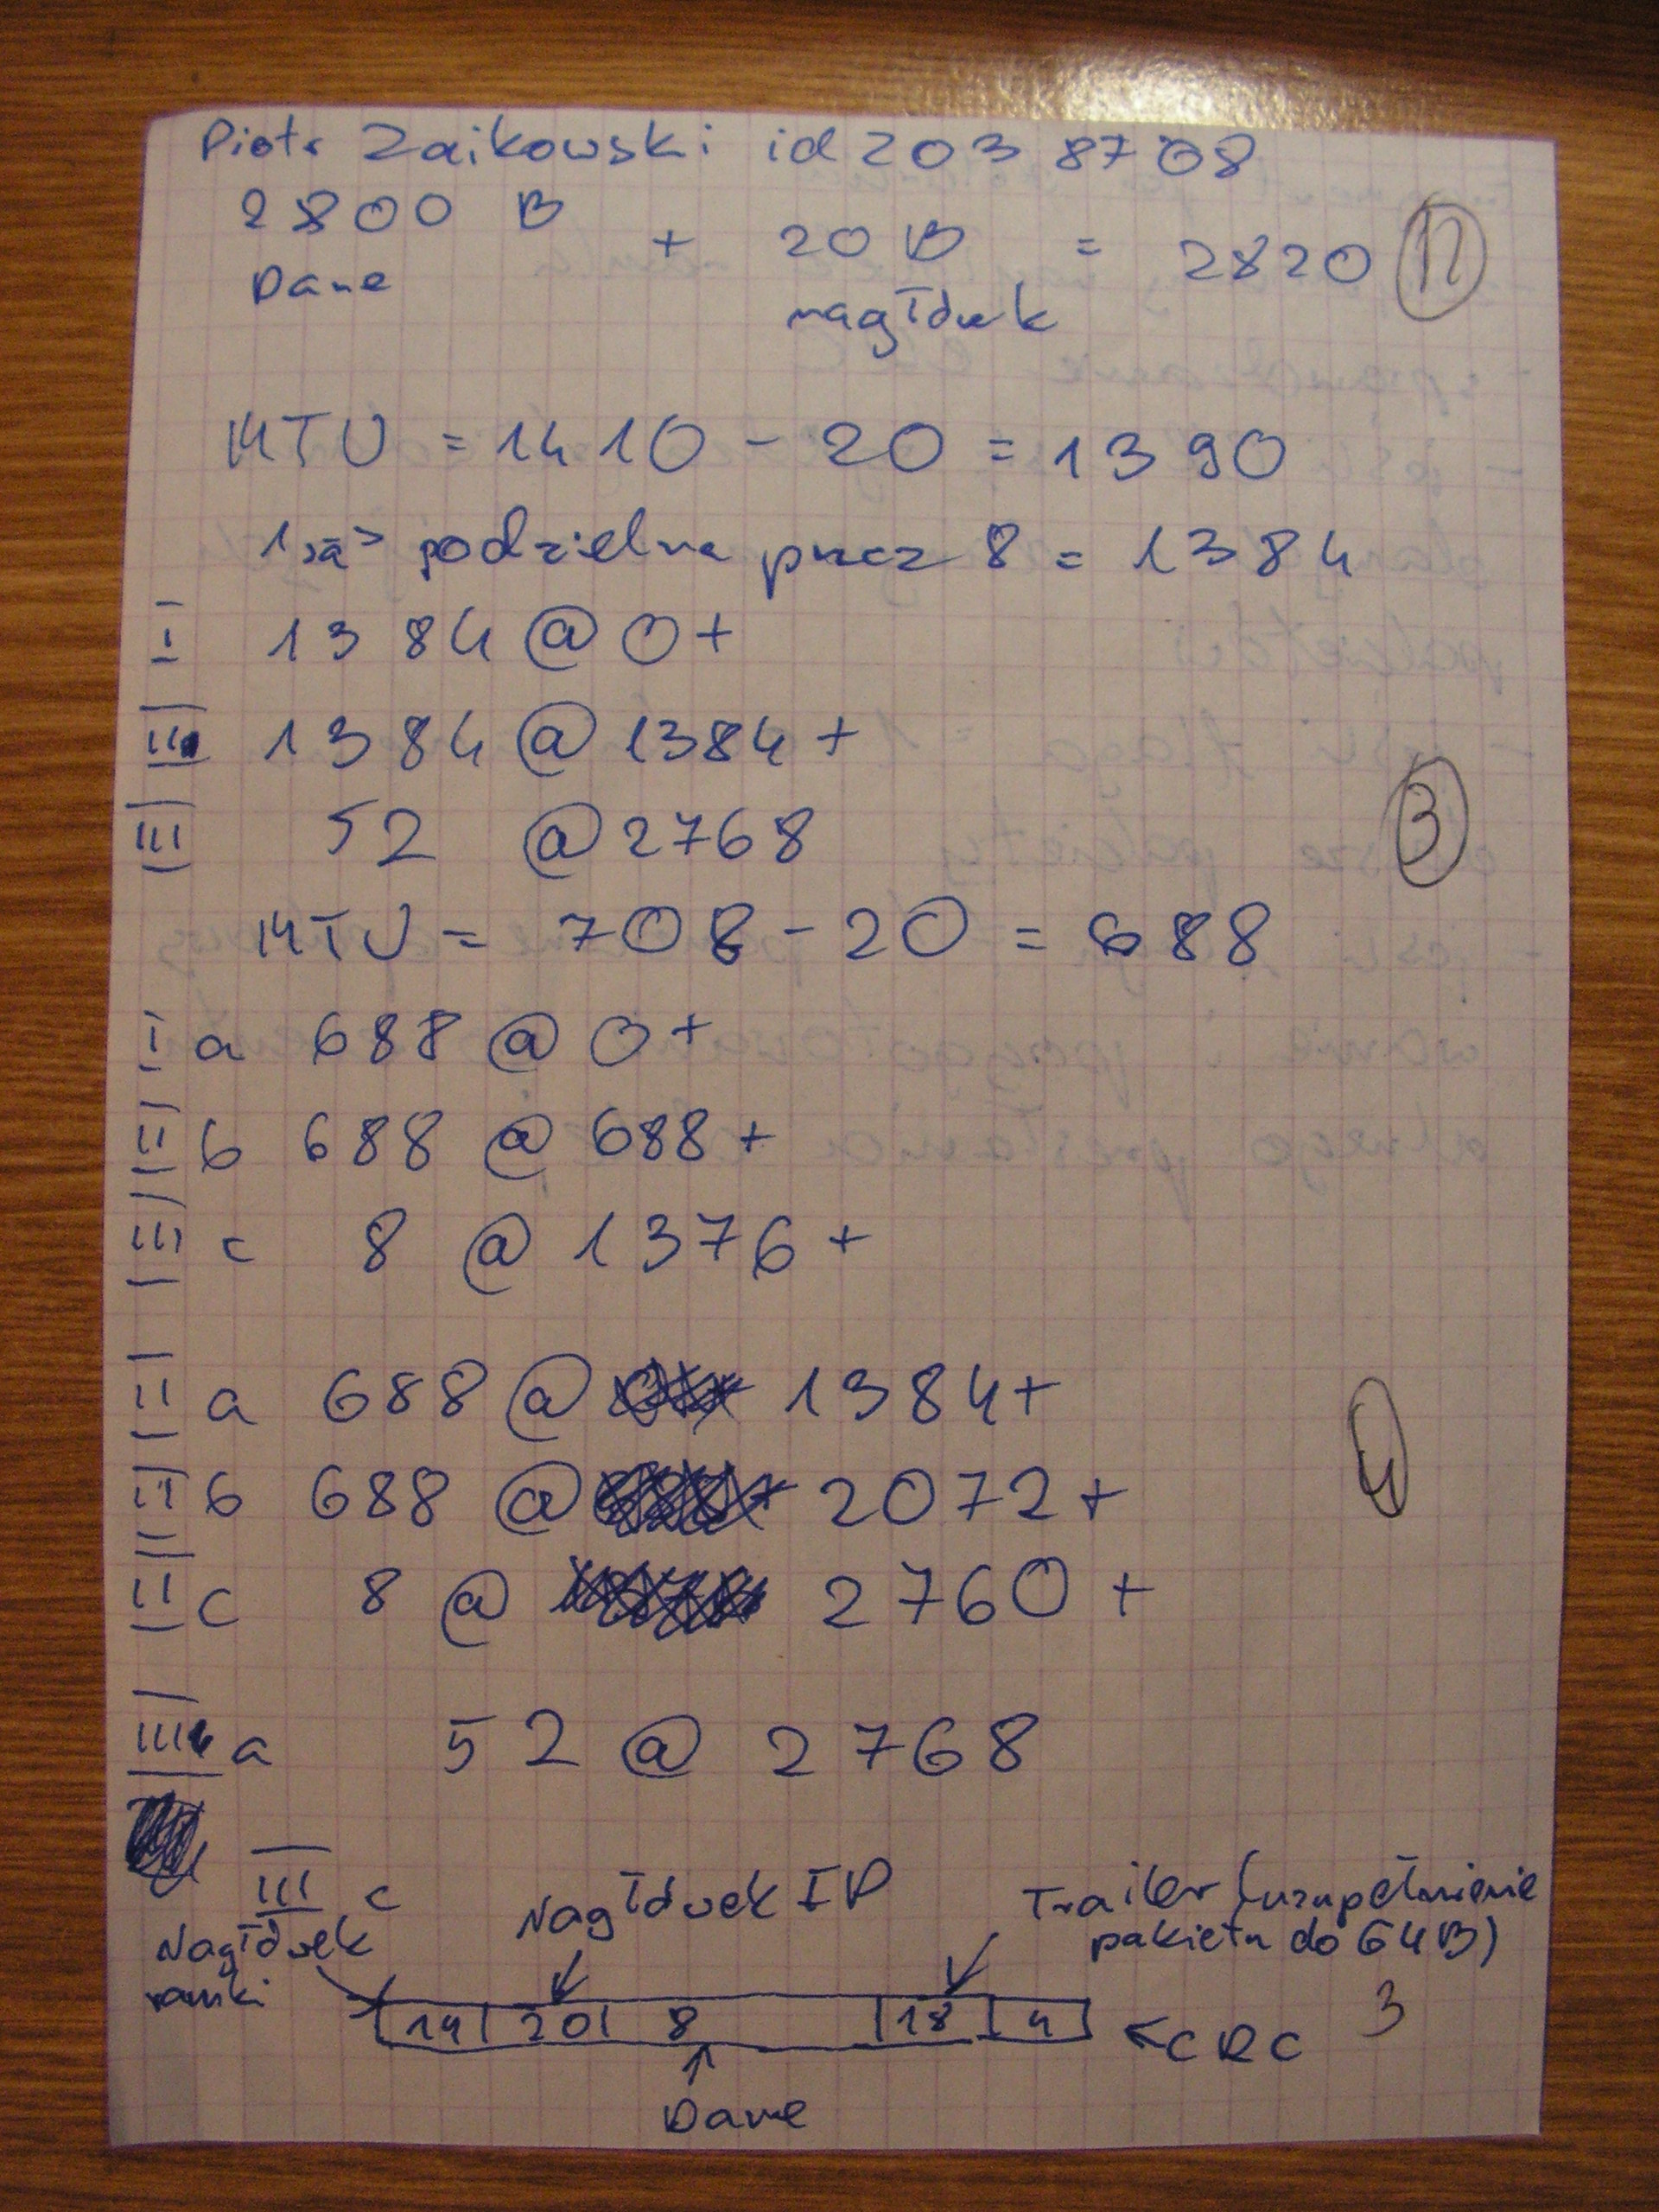 Piotr Zaikowski id 2038708
2800 B + 20 B = 2820
Dane nagłówek
12
MTU = 1410 - 20 = 1390
podzielna przez 8 = 1384
I 1384 @ 0+
II 1384 @ 1384 +
III 52 @ 2768
3
MTU = 708 - 20 = 688
I a 688 @ 0+
II b 688 @ 688 +
III c 8 @ 1376 +
II a 688 @ 1384+
II b 688 @ 2072+
4
II c 8 @ 2760 +
III a 52 @ 2768
III c Nagłówek IP Trailer (uzupełnienie
Nagłówek pakietu do 64B)
ramki
14 20 8 18 4 ←CRC 3
Dane